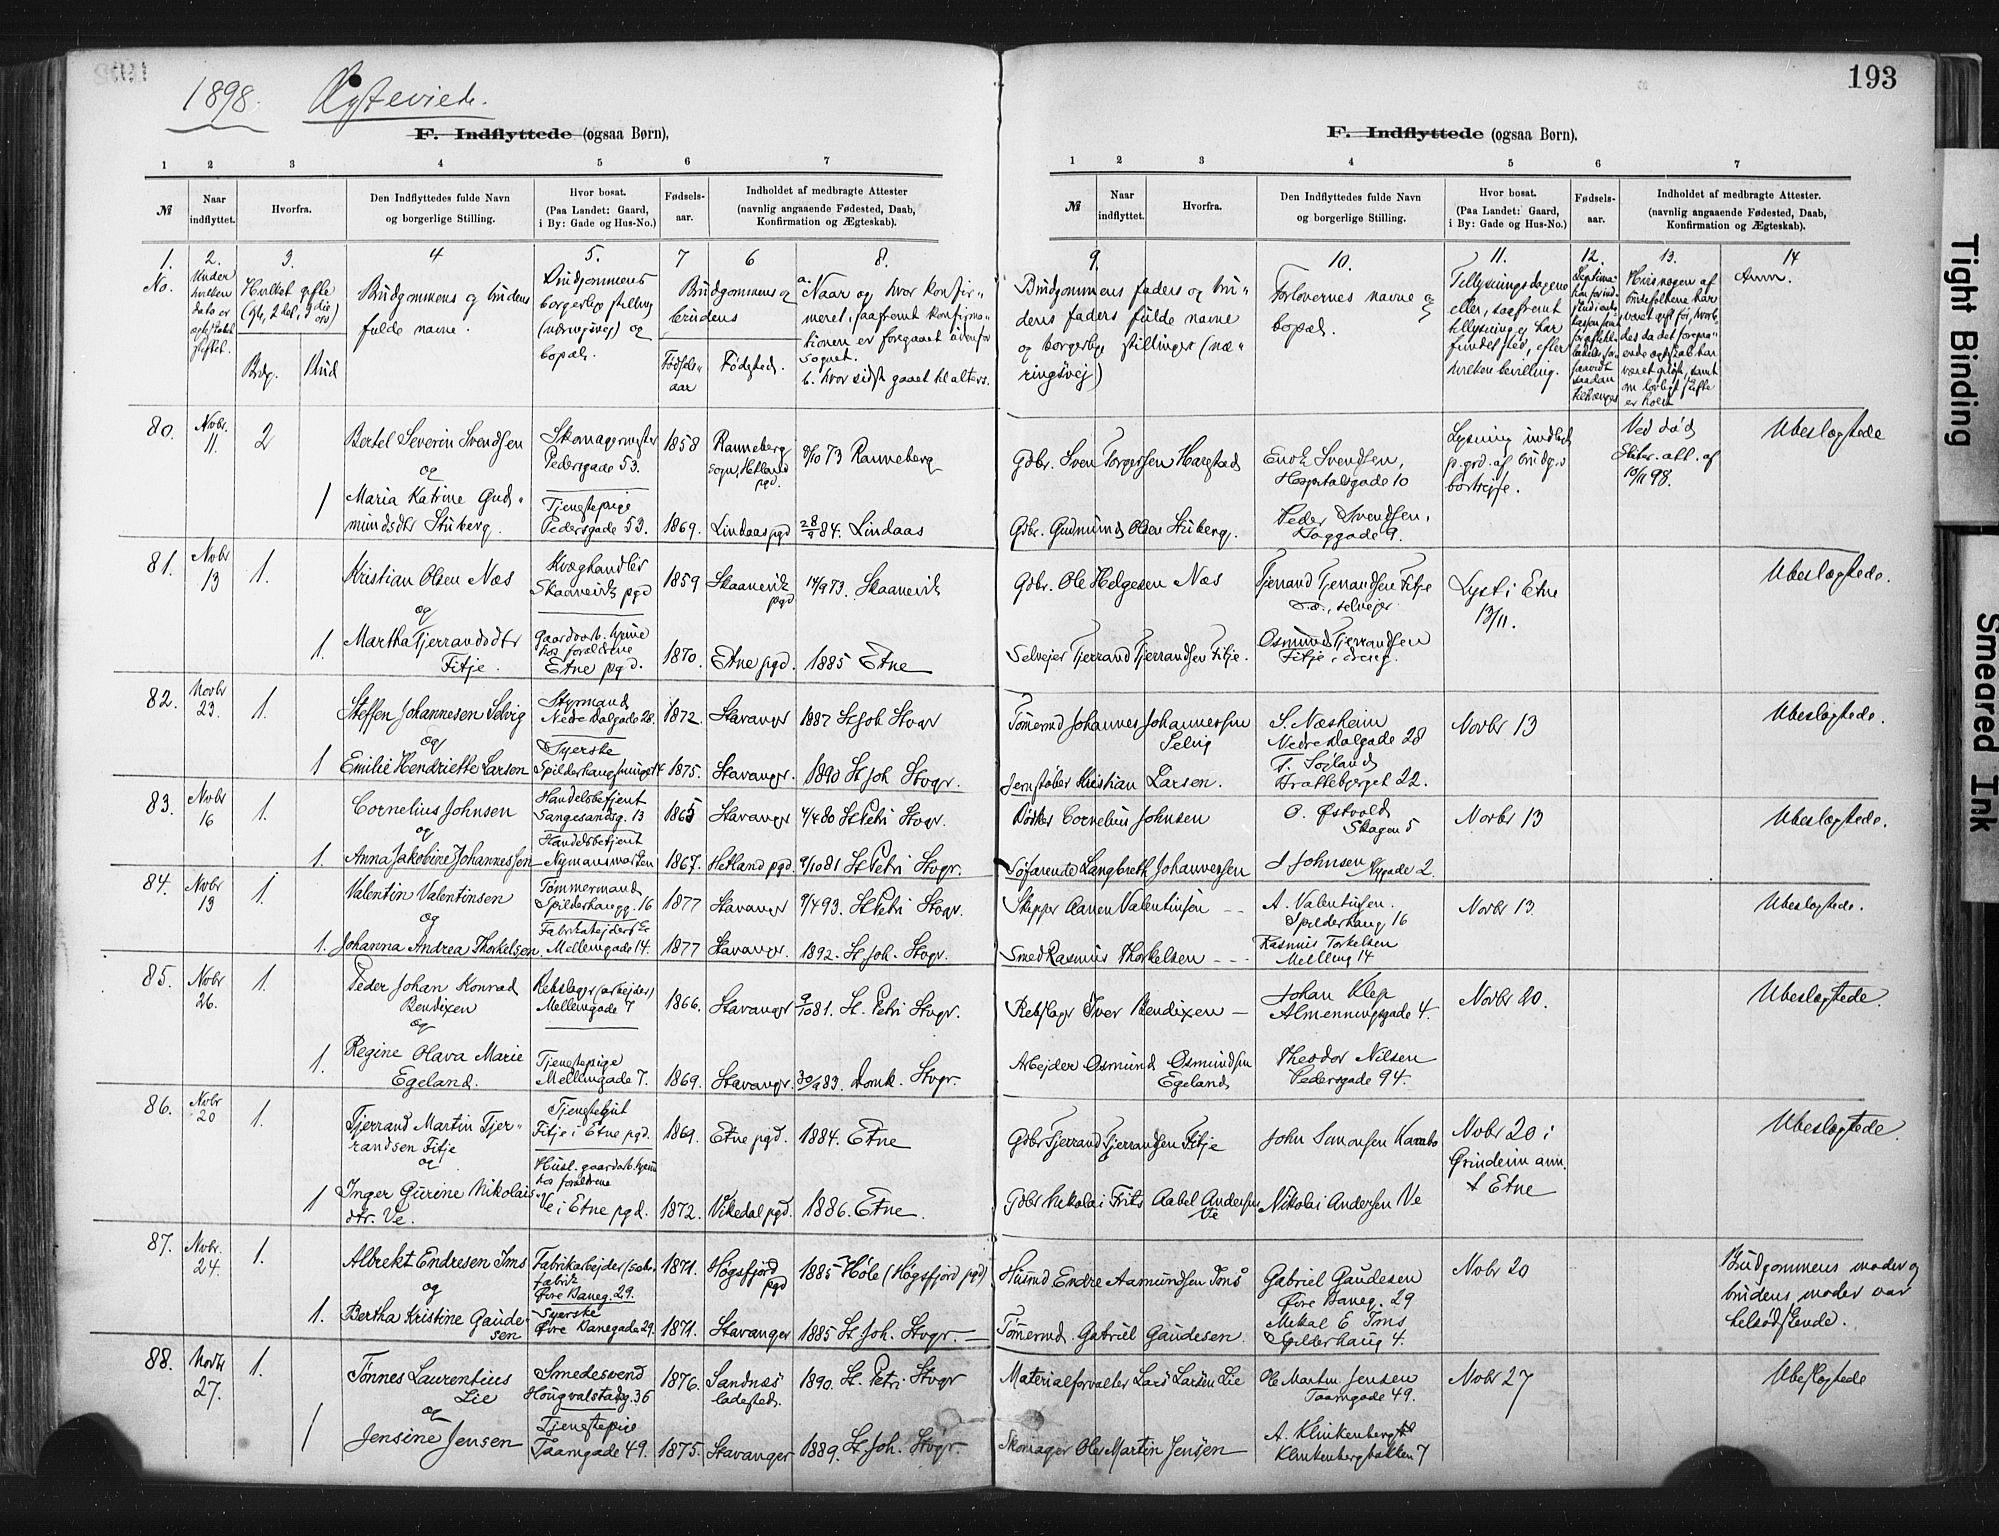 193
1898. Ægteviede.
F. Indflyttede (ogsaa Børn),
1 2 3 4 5 6 7
№
Naar indflyttet.
Hvorfra.
Den Indflyttedes fulde Navn og borgerlige Stilling.
Hvor bosat. (Paa Landet: Gaard, i By: Gade og Hus-No.)
Fødsels-aar.
Indholdet af medbragte Attester (navnlig angaaende Fødested, Daab, Konfirmation og Ægteskab).
F. Indflyttede (ogsaa Børn).
1 2 3 4 5 6 7
№
Naar indflyttet.
Hvorfra.
Den Indflyttedes fulde Navn og borgerlige Stilling.
Hvor bosat. (Paa Landet: Gaard, i By: Gade og Hus-No.)
Fødsels-aar.
Indholdet af medbragte Attester. (navnlig angaaende Fødested, Daab, Konfirmation og Ægteskab).
1. 2. 3. 4 5. 7 6 8.
No.
Brdg. Brud
Brudgommens og brudens fulde navne.
Brudgommens borgerlig stilling (næringsvej) og bopæl.
Brudgommens og brudens
Fødselsaar
Fødested.
a. Naar og hvor konfirmeret, saafremt konfirmationen er foregaaet udenfor sognet.
b. hvor sidst gaaet til alters.
9. 10. 11. 12. 13. 14
Brudgommens faders og brudens faders fulde navne og borgerlige stillinger (næringsvej)
Forlovernes navne og bopæl.
Tillysningsdagene eller, saafremt tillysning ej har fundet sted, efter hvilken bevilling.
Anm.
80. Novbr. 11. 2 Bertel Severin Svendsen Skomagermester Pedersgade 53. 1858 Ranneberg sogn, Hetland pgd. 5/10 73 Ranneberg
og
1 Maria Katrine Gudmundsdtr Stuberg. Tjenestepige Pedersgade 53. 1869. Lindaas pgd 28/9 84. Lindaas
Gdbr. Sven Torgersen Harestad Enok Svendsen, Hospitalsgade 10
Gdbr. Gudmund Olsen Stuberg. Peder Svendsen,
Ved død
Ubeslægtede
81. Novbr 13 1. Kristian Olsen Næs Kvæghandler Skaanevik pgd 1859 Skaanevik pgd 14/9 73. Skaanevik
og
1. Martha Tjerrandsdtr Fitje. Etne pgd. 1870. Etne pgd. 1885 Etne
Gdbr. Ole Helgesen Næs Tjerrand Tjerrandsen Fitje s.s., selvejer Lyst i Etne 13/11.
Selvejer Tjerrand Tjerrandsen Fitje. Osmund Tjerrandsen Fitje,
Ubeslægtede.
82. Novbr 23. 1. Steffen Johannesen Selvig Styrmand Nedre Dalgade 28. 1872. Stavanger 1887 St Joh Stvgr
og
1 Emilie Hendriette Larsen Syerske 1875. Stavanger. 1890 St Joh. Stvgr.
Tømermd Johannes Johannessen Selvig S. Næsheim Nedre Dalgade 28 Novbr 13
Jernstøber Kristian Larsen. T. Søiland Brattebjerget 22.
Ubeslægtede.
83. Novbr 16 1. Cornelius Johnsen Handelsbetjent 1865 Stavanger 4/4 80 St Petri Stvgr.
og
1. Anna Jakobine Johannessen Handelsbetjent 1867. Hetland pgd. 9/10 81 St Petri Stvgr.
Bødker Cornelius Johnsen O. Østvold Skagen 5 Novbr 13
Søfarende Langbreth Johannessen J Johnsen Nygade 2.
Ubeslægtede.
84. Novbr 13 1. Valentin Valentinsen Tømmermand Spilderhaugg. 16 1877 Stavanger 9/4 93. St Petri Stvgr.
og
1. Johanna Andrea Thorkelsen. Mellemgade 14. 1877 Stavanger. 1892. St Joh. Stvgr.
Skipper Aanen Valentinsen A. Valentinsen. Spilderhaug 16 Novbr 13.
Smed Rasmus Thorkelsen Rasmus Torkelsen Mellemg 14
Ubeslægtede.
85. Novbr 26. 1. Peder Johan Konrad Bendixen Rebslager (arbejder) Mellemgade 7 1866. Stavanger 9/10 81. St. Petri Stvgr.
og
1. Regine Olava Marie Egeland. Tjenestepige Mellemgade 7. 1869. Stavanger. 30/9 83. Domk. Stvgr.
Rebslager Iver Bendixen Johan Klep Almenningsgade 4. Novbr 20.
Arbejder Osmund Osmundsen Egeland Theodor Nilsen Pedersgade 94.
Ubeslægtede.
86. Novbr 20 1. Tjerrand Martin Tjerrandsen Fitje Tjenestegut Fitje i Etne pgd. 1869. Etne pgd. 1884. Etne
og
1 Inger Gurine Nikolaisdtr. Ve. Ve i Etne pgd. 1872. Vikedal pgd. 1886. Etne.
Gdbr Tjerrand Tjerrandsen Fitje John Simonsen Novbr 20 i Grindeim ann. t Etne
Gdbr Nikolai Frits Aabel Andersen Ve Nikolai Andersen Ve
Ubeslægtede.
87. Novbr. 24. 1. Albrekt Endresen Ims Fabrikarbejder Øvre Baneg. 29. 1871. Høgsfjord pgd 1885 Høle (Høgsfjord pgd)
og
1. Bertha Kristine Gaudesen Syerske Øvre Banegade 29. 1871. Stavanger 1885 St Joh. Stvgr.
Husmd Endre Aamundsen Ims Gabriel Gaudesen Øvre Baneg. 29 Novbr 20
Tømermd. Gabriel Gaudesen. Mikal E Ims Spilderhaug 4.
Brudgommens moder og brudens moder var helsødskende.
88. Novbr 27. 1. Tønnes Laurentius Lie Smedesvend 1876. Sandnæs ladested. 1890. St. Petri Stvgr
og
1 Jensine Jensen Tjenestepige Taarngade 49. 1875. Stavanger 1889. St Joh. Stvgr.
Materialforvalter Lars Larsen Lie Ole Martin Jensen Taarngade 49. Novbr 27
Skomager Ole Martin Jensen A. Klinkenberg Klinkenbergbakken 7
Ubeslægtede
Tight Binding
Smeared Ink